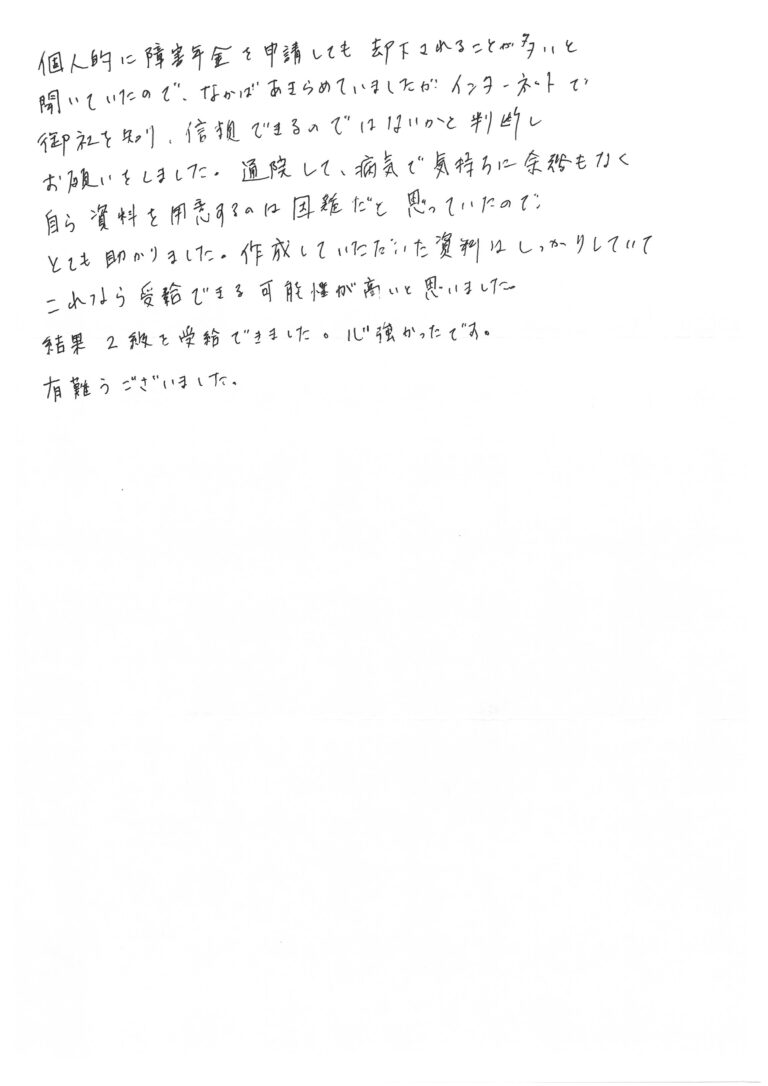 個人的に障害年金を申請しても却下されることが多いと
聞いていたので、なかばあきらめていましたが インターネットで
御社を知り、信頼できるのではないかと判断し
お願いをしました。通院して、病気で気持ちに余裕もなく
自ら資料を用意するのは困難だと思っていたので、
とても助かりました。作成していただいた資料はしっかりしていて
これなら受給できる可能性が高いと思いました。
結果 2級を受給できました。心強かったです。
有難うございました。